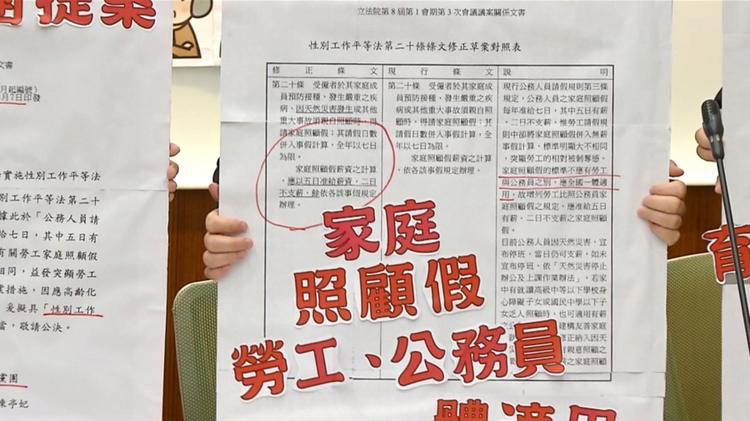 立法院第8屆第1會期第3次會議議案關係文書
性別工作平等法第二十條條文修正草案對照表
修正條文
現行條文
說明
第二十條 受僱者於其家庭成
員預防接種、發生嚴重之疾
病、因天然災害發生或其他
重大事故須親自照顧時,得
請家庭照顧假;其請假日數
併入事假計算,全年以七日
為限。
家庭照顧假薪資之計算,
應以五日准給薪資,二日
不支薪,餘依各該事假規定
辦理。
第二十條 受僱者於其家庭成
員預防接種、發生嚴重之疾
病或其他重大事故須親自照
顧時,得請家庭照顧假;其
請假日數併入事假計算,全
年以七日為限。
家庭照顧假薪資之計算,
依各該事假規定辦理。
現行公務人員請假規則第三條
規定,公務人員之家庭照顧假
每年准給七日,其中五日有薪
、二日不支薪,惟勞工請假規
則中卻將家庭照顧假併入無薪
事假計算,標準明顯大不相同
,突顯勞工的相對被剝奪感。
家庭照顧假的標準不應有勞工
與公務員之別,應全國一體適
用,故增列勞工比照公務員家
庭照顧假之規定,應准給五日
薪、二日不支薪之家庭照顧假
。
目前公務人員因天然災害,宣
布停班,當日仍可支薪,如未
宣布停班,依「天然災害停止
辦公及上課作業辦法」,若家
中有就讀高級中等以下學校身
心障礙子女或國民中學以下子
女乏人照顧時,也可適用有薪
建構友善家庭
修正納入因天
有親意照顧之
家庭
照顧假
勞工、公務員
一體適用
提案
月起編號)
月7日印發
實施性別工作平等法
性別工作平等法第二十
據此於「公務人員請
給七日,其中五日有
有關勞工家庭照顧假
相同,益發突顯勞工
措施,因應高齡化
爰擬具「性別工作
當,敬請公決。
黨團
陳亭妃
育